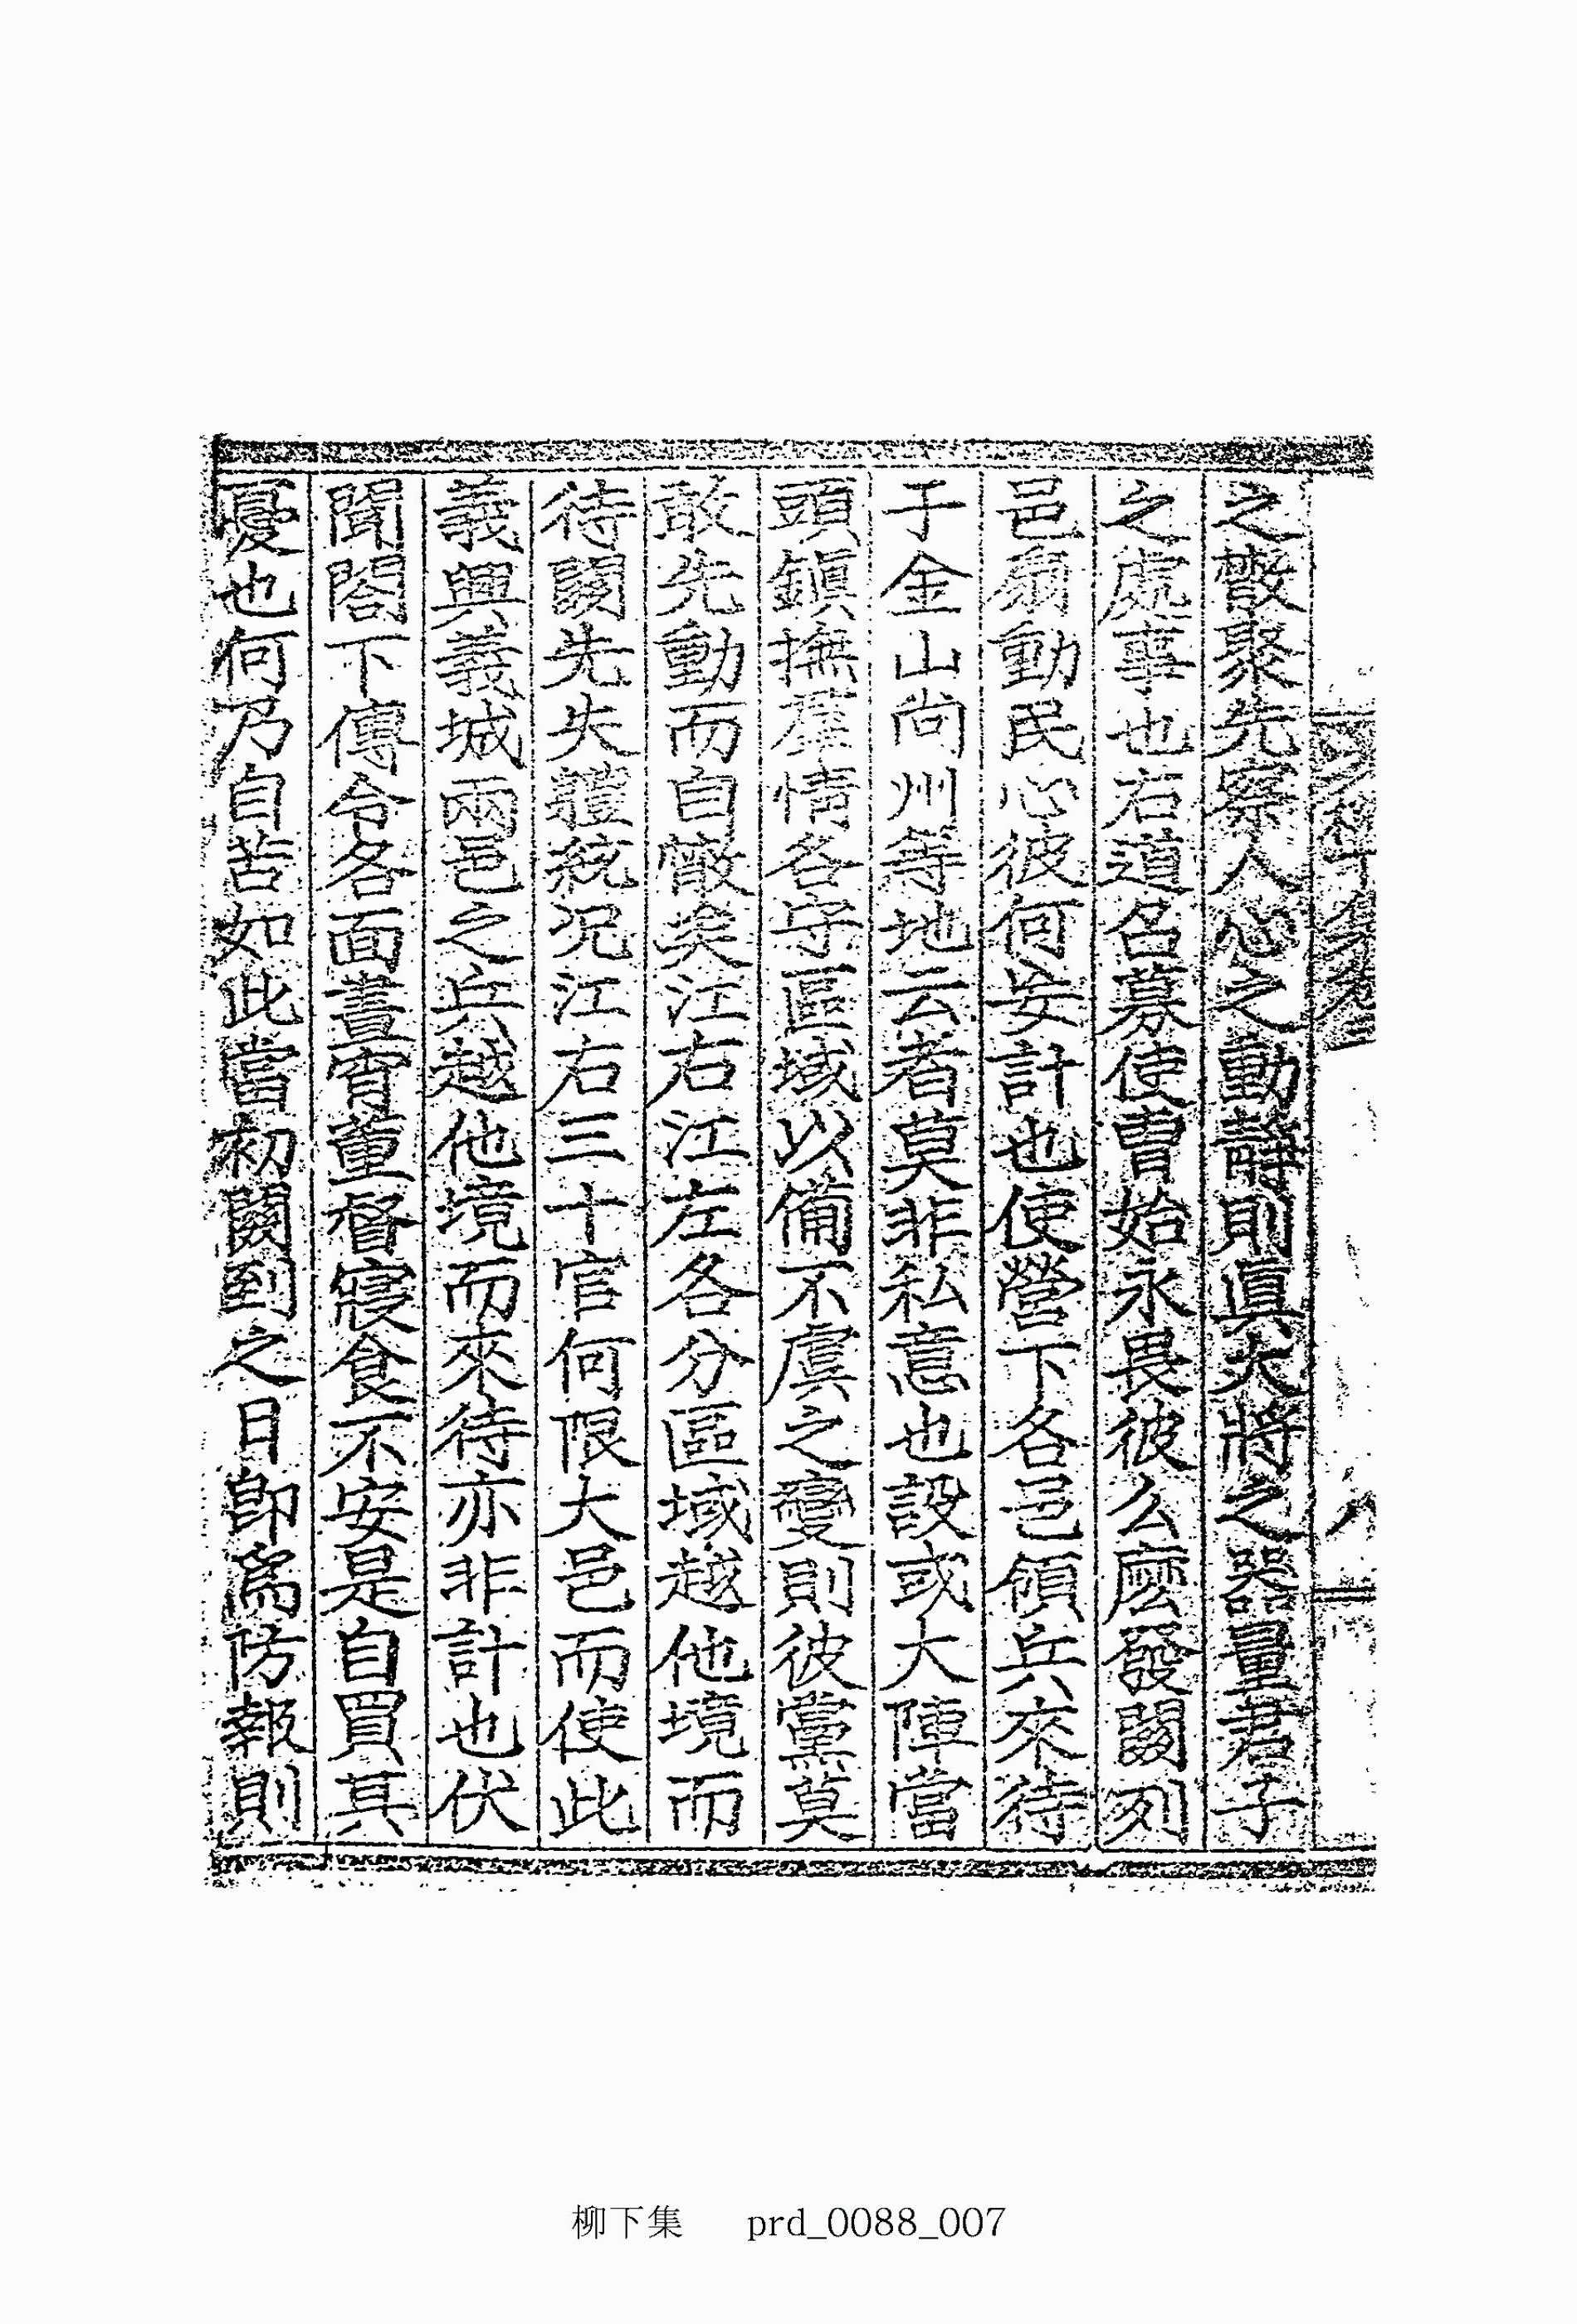 之散聚先察人心之動靜則眞大將之器量君子
之處事也右道名募使曺始永畏彼么麽發關列
邑扇動民心彼何妄計也使營下各邑領兵來待
于金山尙州等地云者莫非私意也設或大陣當
頭鎭撫羣情各守區域以備不虞之變則彼黨莫
敢先動而自散矣江右江左各分區域越他境而
待關先失軆統况江右三十官何限大邑而使此
義興義城兩邑之兵越他境而來待亦非計也伏
聞閤下傳令各面晝宵董督寢食不安是自買其
憂也何乃自苦如此當初關到之日卽爲防報則
柳下集 prd_0088_007